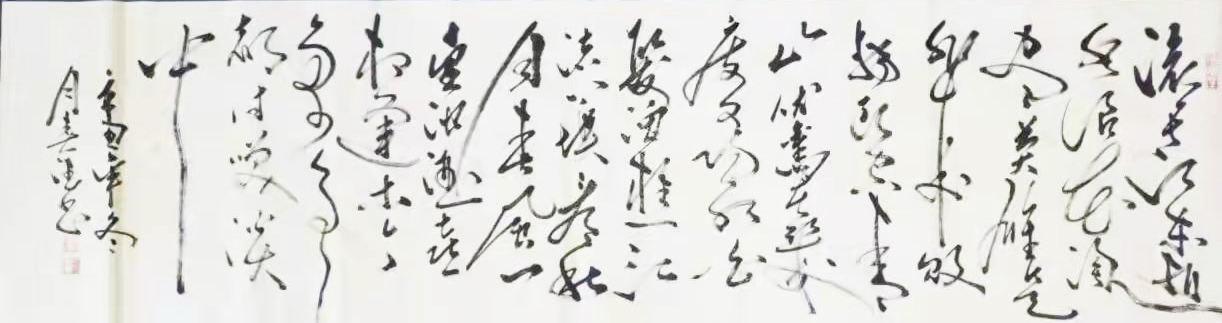 滚滚长江东逝
水浪花淘
尽英雄是
非成败
转头空青
山依旧在几
度夕阳红白
发渔樵江
渚上惯看秋
月春风一
壶浊酒喜
相逢古今
多少事
都付笑谈
中
辛丑年冬
月
书